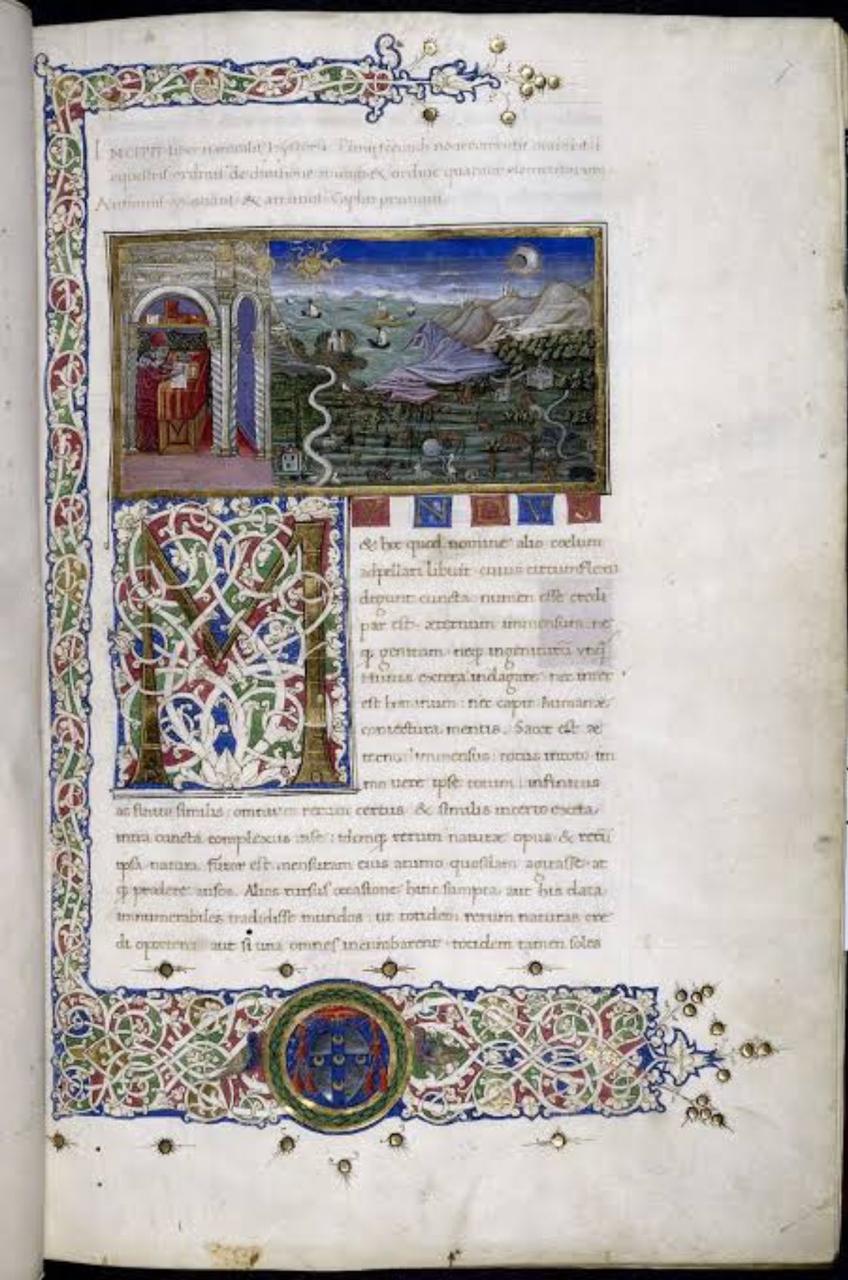 INCIPIT liber naturalis hystoriæ
equestris ordinis de
& an
M V N D V S
& hoc quod nomine alio cœlum
adpellari libuit cuius circumflexu
degunt cuncta numen esse credi
par est æternum immensum ne
q; genitum neq; ingenitum
Huius extera indagare nec inter
est hominum nec capit humanæ
coniectura mentis. Sacer est æ
ternus immensus totus in toto im
mo uere ipse totum infinitus
ac finito similis omnium rerum certus & similis incerto extra
intra cuncta complexus in se idemq; rerum naturæ opus & rerū
ipsa natura furor est mensuram eius animo quosdam agitasse at
q; prodere ausos. Alios rursus occasione hinc sumpta aut his data
innumerabiles tradidisse mundos ut totidem rerum naturas cre
di oporteret aut si una omnes incubarent totidem tamen soles